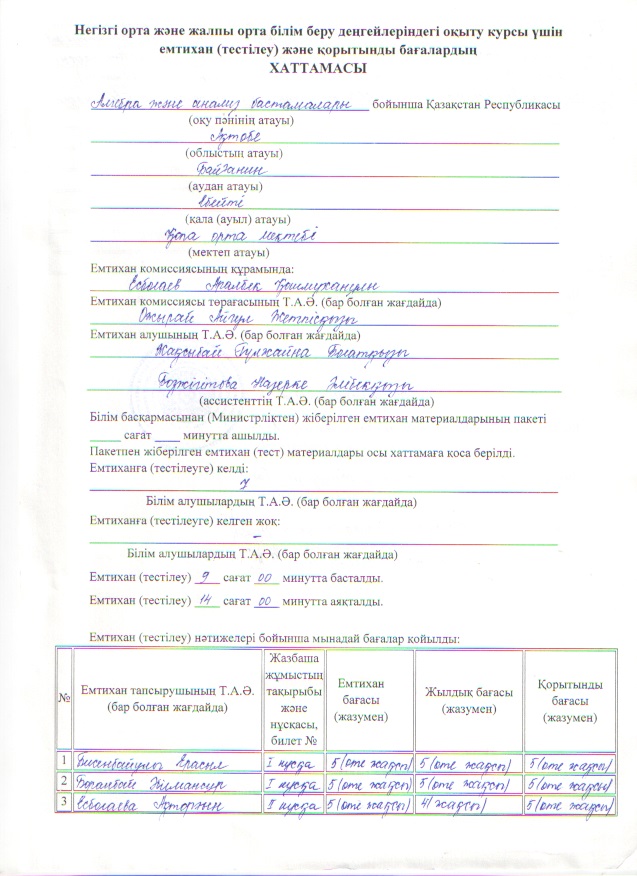 Негізгі орта және жалпы орта білім беру деңгейлеріндегі оқыту курсы үшін
емтихан (тестілеу) және қорытынды бағалардың
ХАТТАМАСЫ
Алгебра және анализ бастамалары бойынша Қазақстан Республикасы
(оқу пәнінің атауы)
Ақтөбе
(облыстың атауы)
Байғанин
(аудан атауы)
Ебейті
(қала (ауыл) атауы)
Қопа орта мектебі
(мектеп атауы)
Емтихан комиссиясының құрамында:
Есболаев
Емтихан комиссиясы төрағасының Т.А.Ә. (бар болған жағдайда)
Айгүл Жетпісқызы
Емтихан алушының Т.А.Ә. (бар болған жағдайда)
Гүлжайна Болатқызы
Назерке Әлібекқызы
(ассистенттің Т.А.Ә. (бар болған жағдайда)
Білім басқармасынан (Министрліктен) жіберілген емтихан материалдарының пакеті
____ сағат ____ минутта ашылды.
Пакетпен жіберілген емтихан (тест) материалдары осы хаттамаға қоса берілді.
Емтиханға (тестілеуге) келді:
7
Білім алушылардың Т.А.Ә. (бар болған жағдайда)
Емтиханға (тестілеуге) келген жоқ:
–
Білім алушылардың Т.А.Ә. (бар болған жағдайда)
Емтихан (тестілеу) 9 сағат 00 минутта басталды.
Емтихан (тестілеу) 14 сағат 00 минутта аяқталды.
Емтихан (тестілеу) нәтижелері бойынша мынадай бағалар қойылды:
№ Емтихан тапсырушының Т.А.Ә. (бар болған жағдайда) Жазбаша жұмыстың тақырыбы және нұсқасы, билет № Емтихан бағасы (жазумен) Жылдық бағасы (жазумен) Қорытынды бағасы (жазумен)
1 I нұсқа 5 (өте жақсы) 5 (өте жақсы) 5 (өте жақсы)
2 I нұсқа 5 (өте жақсы) 5 (өте жақсы) 5 (өте жақсы)
3 Есболаева II нұсқа 5 (өте жақсы) 4 (жақсы) 5 (өте жақсы)